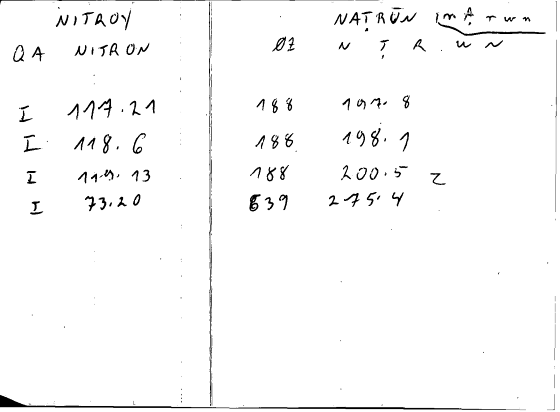 NITROY NAṬRŪN
QA NITRON Ø1 N Ṭ R W N
I 117.21 188 197.8
I 118.6 188 198.1
I 119.13 188 200.5
I 73.20 639 275.4